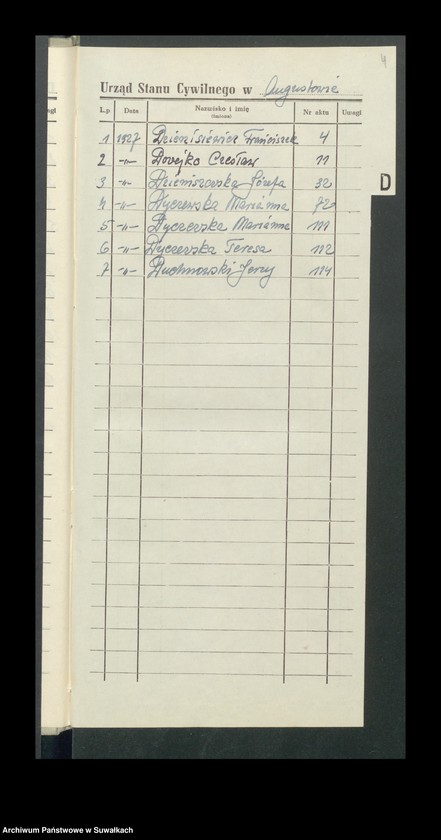 4
Urząd Stanu Cywilnego w Augustowie
L.p. Data Nazwisko i imię (imiona) Nr aktu Uwagi
1 1927 Franciszek 4
2 -"- Dovejko Czesław 11
3 -"- Józefa 32
4 -"- Dyczewska Marianna 72
5 -"- Dyczewska Marianna 111
6 -"- Dyczewska Teresa 112
7 -"- Duchnowski Jerzy 114
D
Archiwum Państwowe w Suwałkach